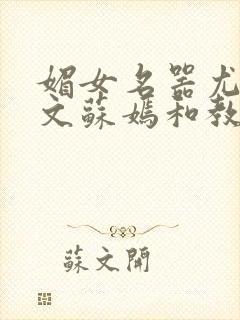 媚女名器尤
文蘇媽和教
蘇文開